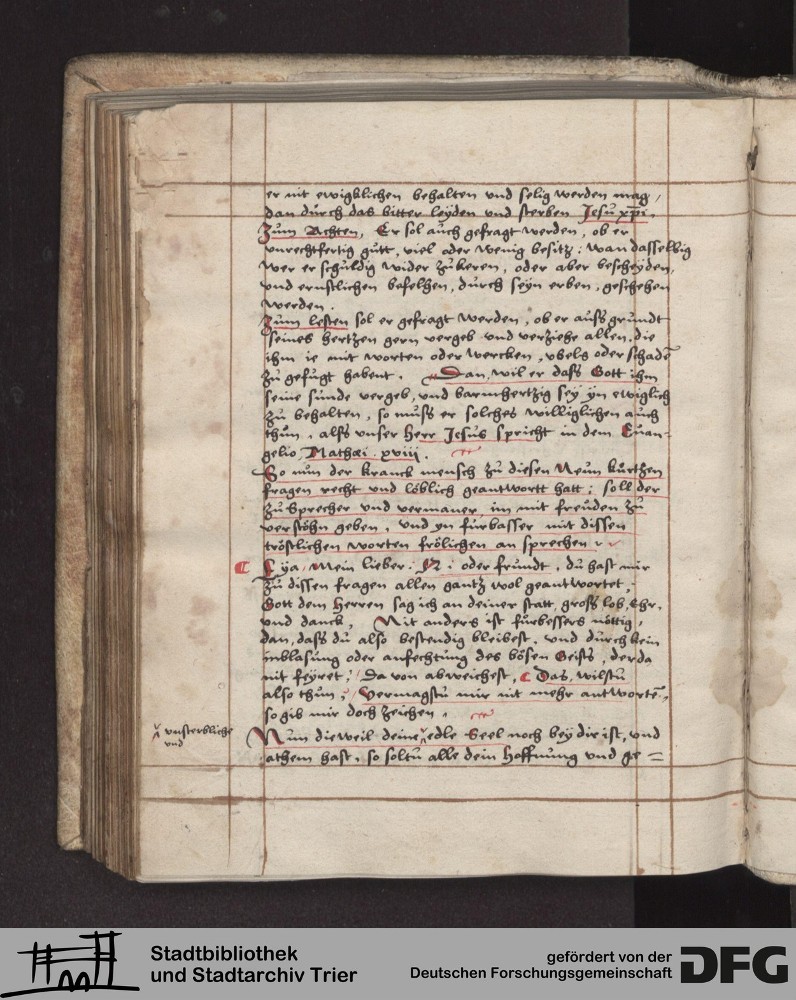 er nit ewigklichen behalten und selig werden mag /
dan durch das bitter leÿden und sterben Jesu xpi.
Zum Achten, Er sol auch gefragt werden, ob er
unrechtfertig gutt, viel oder wenig besitz: wan dasselbig
wer er schuldig wider zukeren, oder aber bescheÿden,
und ernstlichen befelhen, durch seÿn erben, geschehen
werden.
Zum lesten sol er gefragt werden, ob er auss grundt
seines hertzen gern vergeb und verziehe allen, die
ihm ie mit worten oder wercken, ubels oder schadē
zu gefugt habent. Dan, wil er dass Gott ihm
seine sunde vergeb, und barmhertzig seÿ ÿn ewiglich
zu behalten, so muss er solches williglichen auch
thun, alss unser Herr Jesus spricht in dem Euan-
gelio Mathæi. xviij.
So nun der kranck mensch zu diesen Neun kurtzen
fragen recht und löblich geantwortt hatt; soll der
zusprecher und vermaner im mit freuden zu
verstöhn geben, und ÿn fürbasser mit dissen
tröstlichen worten frölichen an sprechen
Eÿa, Mein lieber: N: oder frundt, du hast mir
zu dissen fragen allen gantz wol geantwortet,
Gott dem Herren sag ich an deiner statt, gross lob, Ehr,
und danck, Nit anders ist fürbessers nöttig,
dan, dass du also bestendig bleibest, und durch kein
inblasung oder anfechtung des bösen Geists, der da
nit feÿret, da von abweichest, Das, wilstu
also thun, Vermagstu mir nit mehr antwortē,
so gib mir doch zeichen,
unsterbliche
und
Nun dieweil deine edle Seel noch beÿ dir ist, und
athem hast, so soltu alle dein Hoffnung und ge =
Stadtbibliothek
und Stadtarchiv Trier
gefördert von der
Deutschen Forschungsgemeinschaft
DFG